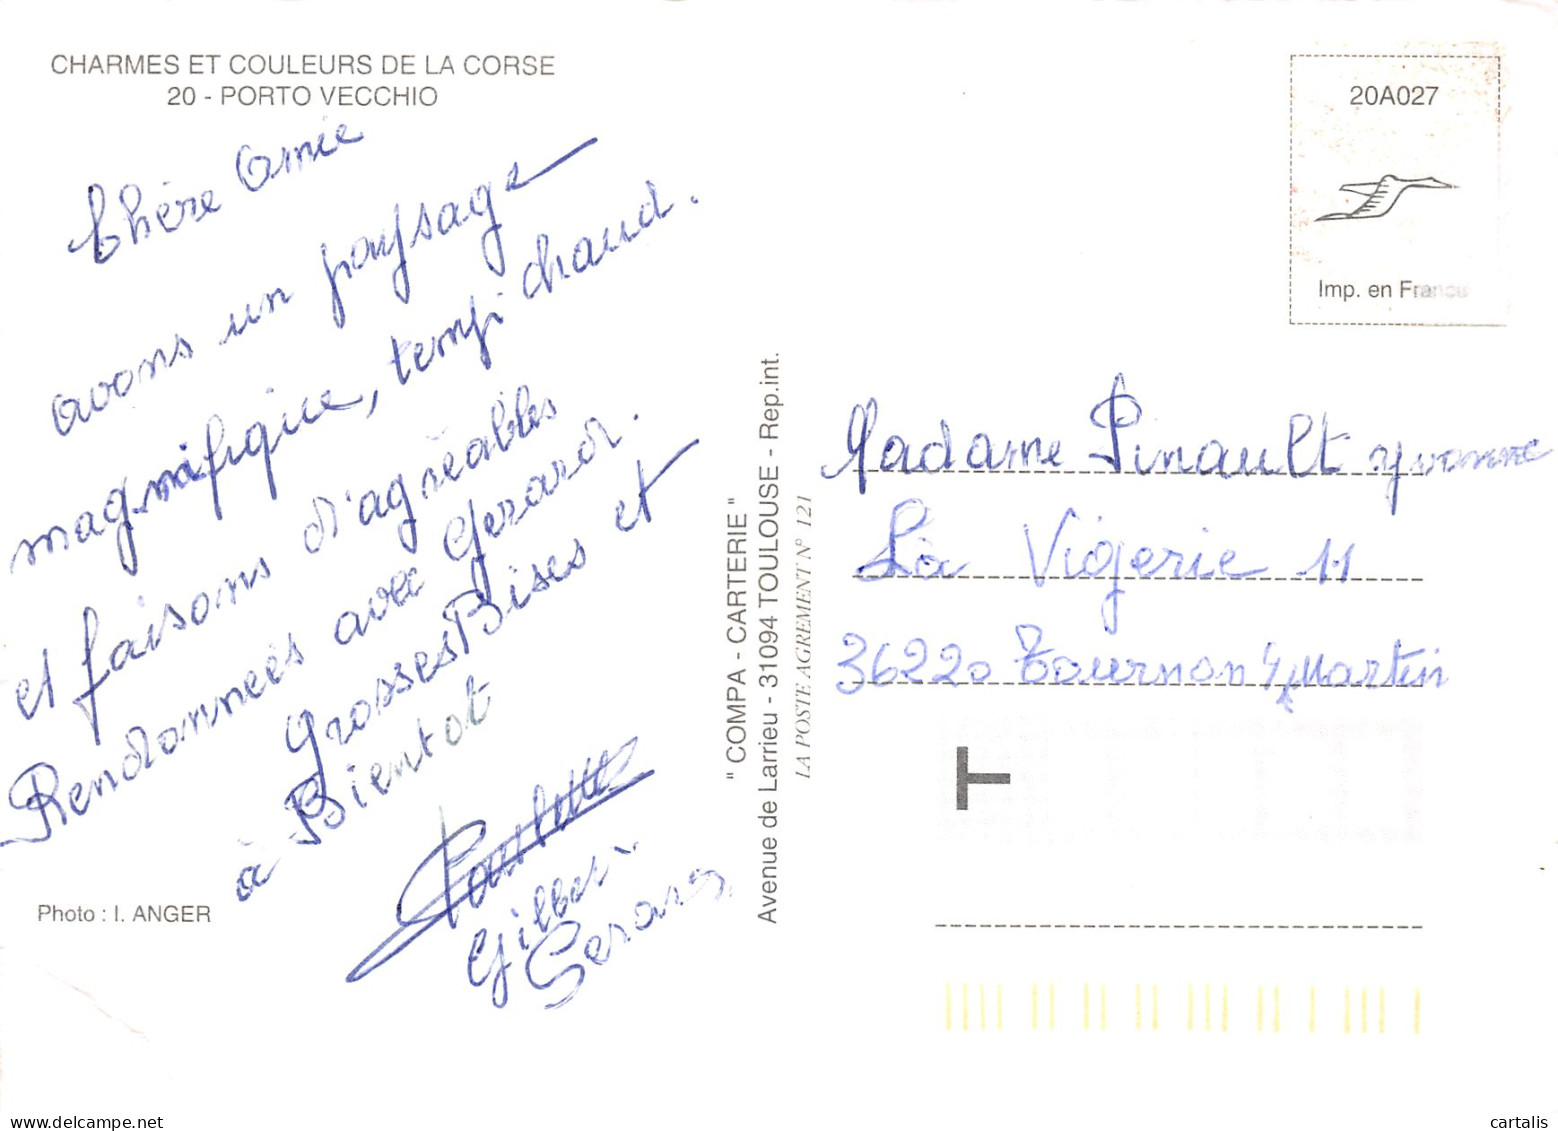 CHARMES ET COULEURS DE LA CORSE
20 - PORTO VECCHIO
Chère Amie
avons un paysage
magnifique, temps chaud.
et faisons d'agréables
Rendonnées avec Gerard.
Grosses Bises et
à Bientot
Gilbert
Gerard
Photo : I. ANGER
" COMPA - CARTERIE "
Avenue de Larrieu - 31094 TOULOUSE - Rep.int.
LA POSTE AGREMENT N° 121
20A027
Imp. en France
Madame Pinault Yvonne
La Vigerie 11
36220 Tournon St Martin
T
cartalis